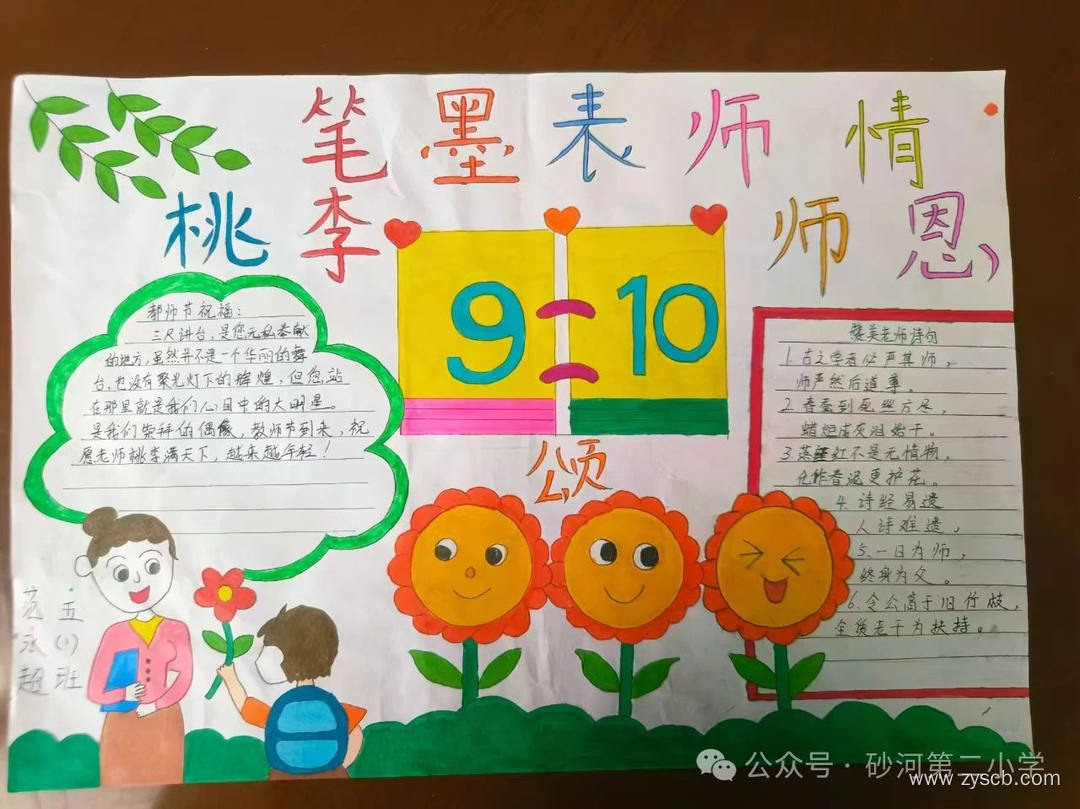 笔墨表师情
桃李 师恩
9 10
颂
教师节祝福：
三尺讲台，是您无私奉献
的地方，虽然并不是一个华丽的舞
台，也没有聚光灯下的辉煌，但您站
在那里就是我们心目中的大明星。
是我们崇拜的偶像，教师节到来，祝
愿老师桃李满天下，越来越年轻！
赞美老师诗句
1.古之学者必严其师，
师严然后道尊。
2.春蚕到死丝方尽，
蜡炬成灰泪始干。
3.落红不是无情物，
化作春泥更护花。
4.诗经易遗
人诗难遗。
5.一日为师，
终身为父。
6.令公高于旧竹枝，
全凭老干为扶持。
五(1)班
范永超
公众号·砂河第二小学
www.zyscb.com